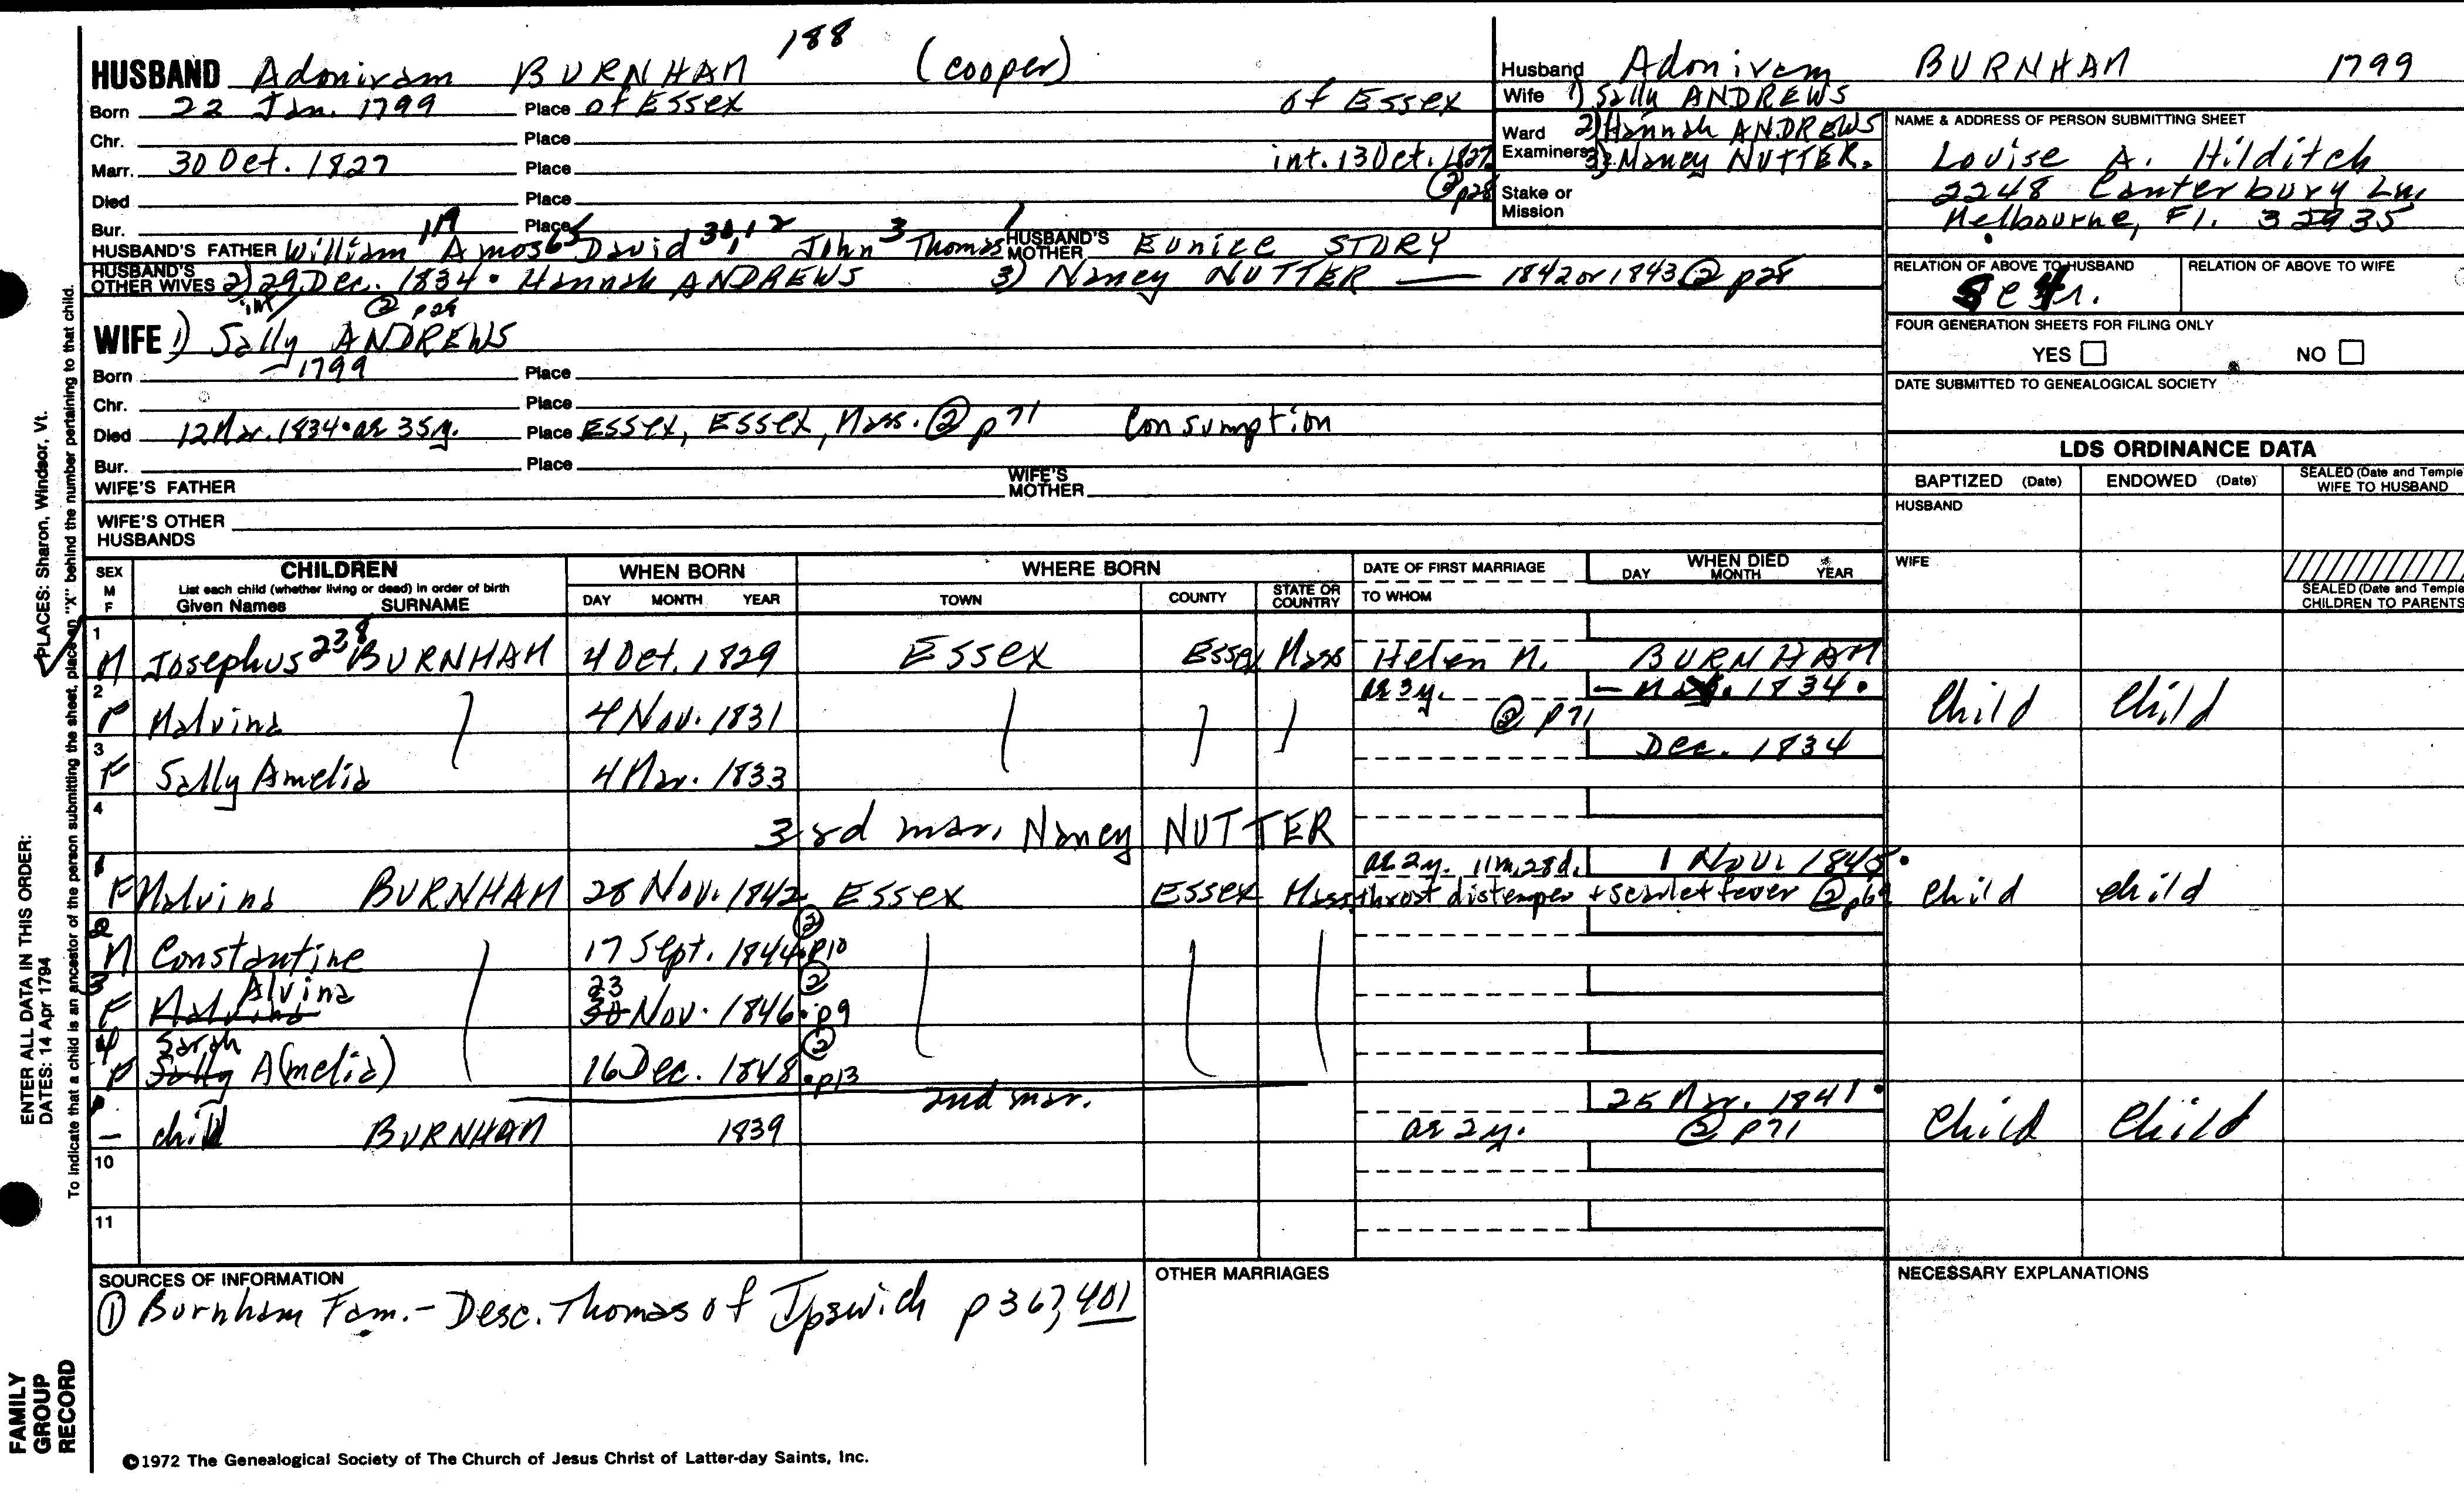 HUSBAND Adoniram BURNHAM 188 (cooper)
Born 22 Jan. 1799 Place of Essex of Essex
Chr. Place
Marr. 30 Oct. 1827 Place int. 13 Oct. 1827
Died Place ② p28
Bur. Place
HUSBAND'S FATHER William Amos David John Thomas HUSBAND'S MOTHER Eunice STORY
HUSBAND'S OTHER WIVES 2) 29 Dec. 1834 • Hannah ANDREWS 3) Nancy NUTTER — 1842 or 1843 ② p28
int ② p28
WIFE 1) Sally ANDREWS
Born —1799 Place
Chr. Place
Died 12 Mar. 1834 • ae 35y. Place Essex, Essex, Mass. ② p71 Consumption
Bur. Place
WIFE'S FATHER WIFE'S MOTHER
WIFE'S OTHER HUSBANDS
Husband Adoniram BURNHAM 1799
Wife 1) Sally ANDREWS
Ward 2) Hannah ANDREWS
Examiners 3) Nancy NUTTER.
Stake or Mission
NAME & ADDRESS OF PERSON SUBMITTING SHEET
Louise A. Hilditch
2248 Canterbury Ln.
Melbourne, Fl. 32935
RELATION OF ABOVE TO HUSBAND RELATION OF ABOVE TO WIFE
FOUR GENERATION SHEETS FOR FILING ONLY
YES NO
DATE SUBMITTED TO GENEALOGICAL SOCIETY
LDS ORDINANCE DATA
BAPTIZED (Date) ENDOWED (Date) SEALED (Date and Temple) WIFE TO HUSBAND
HUSBAND
WIFE
SEALED (Date and Temple) CHILDREN TO PARENTS
SEX M F CHILDREN List each child (whether living or dead) in order of birth Given Names SURNAME WHEN BORN DAY MONTH YEAR WHERE BORN TOWN COUNTY STATE OR COUNTRY DATE OF FIRST MARRIAGE TO WHOM WHEN DIED DAY MONTH YEAR
1 M Josephus 238 BURNHAM 4 Oct. 1829 Essex Essex Mass Helen M. BURNHAM
2 F Malvina 4 Nov. 1831 ae 3y. ② p71 1834 • Child Child
3 F Sally Amelia 4 Mar. 1833 Dec. 1834
4
3rd mar. Nancy NUTTER
1 F Malvina BURNHAM 28 Nov. 1842 Essex Essex Mass. ae 2y. 11m, 28d. 1 Nov. 1845 • throat distemper + scarlet fever ② p69 Child child
2 M Constantine 17 Sept. 1844 • ② p10
3 F Malvina Alvina 30 23 Nov. 1846 • ② p9
4 F Sally Sarah A(melia) 16 Dec. 1848 • ② p13
2nd mar.
— child BURNHAM 1839 ae 2y. 25 Mar. 1841 • ② p71 Child Child
10
11
SOURCES OF INFORMATION
① Burnham Fam. - Desc. Thomas of Ipswich p 367, 401
OTHER MARRIAGES
NECESSARY EXPLANATIONS
©1972 The Genealogical Society of The Church of Jesus Christ of Latter-day Saints, Inc.
ENTER ALL DATA IN THIS ORDER:
DATES: 14 Apr 1794
PLACES: Sharon, Windsor, Vt.
To indicate that a child is an ancestor of the person submitting the sheet, place an "X" behind the number pertaining to that child.
FAMILY
GROUP
RECORD